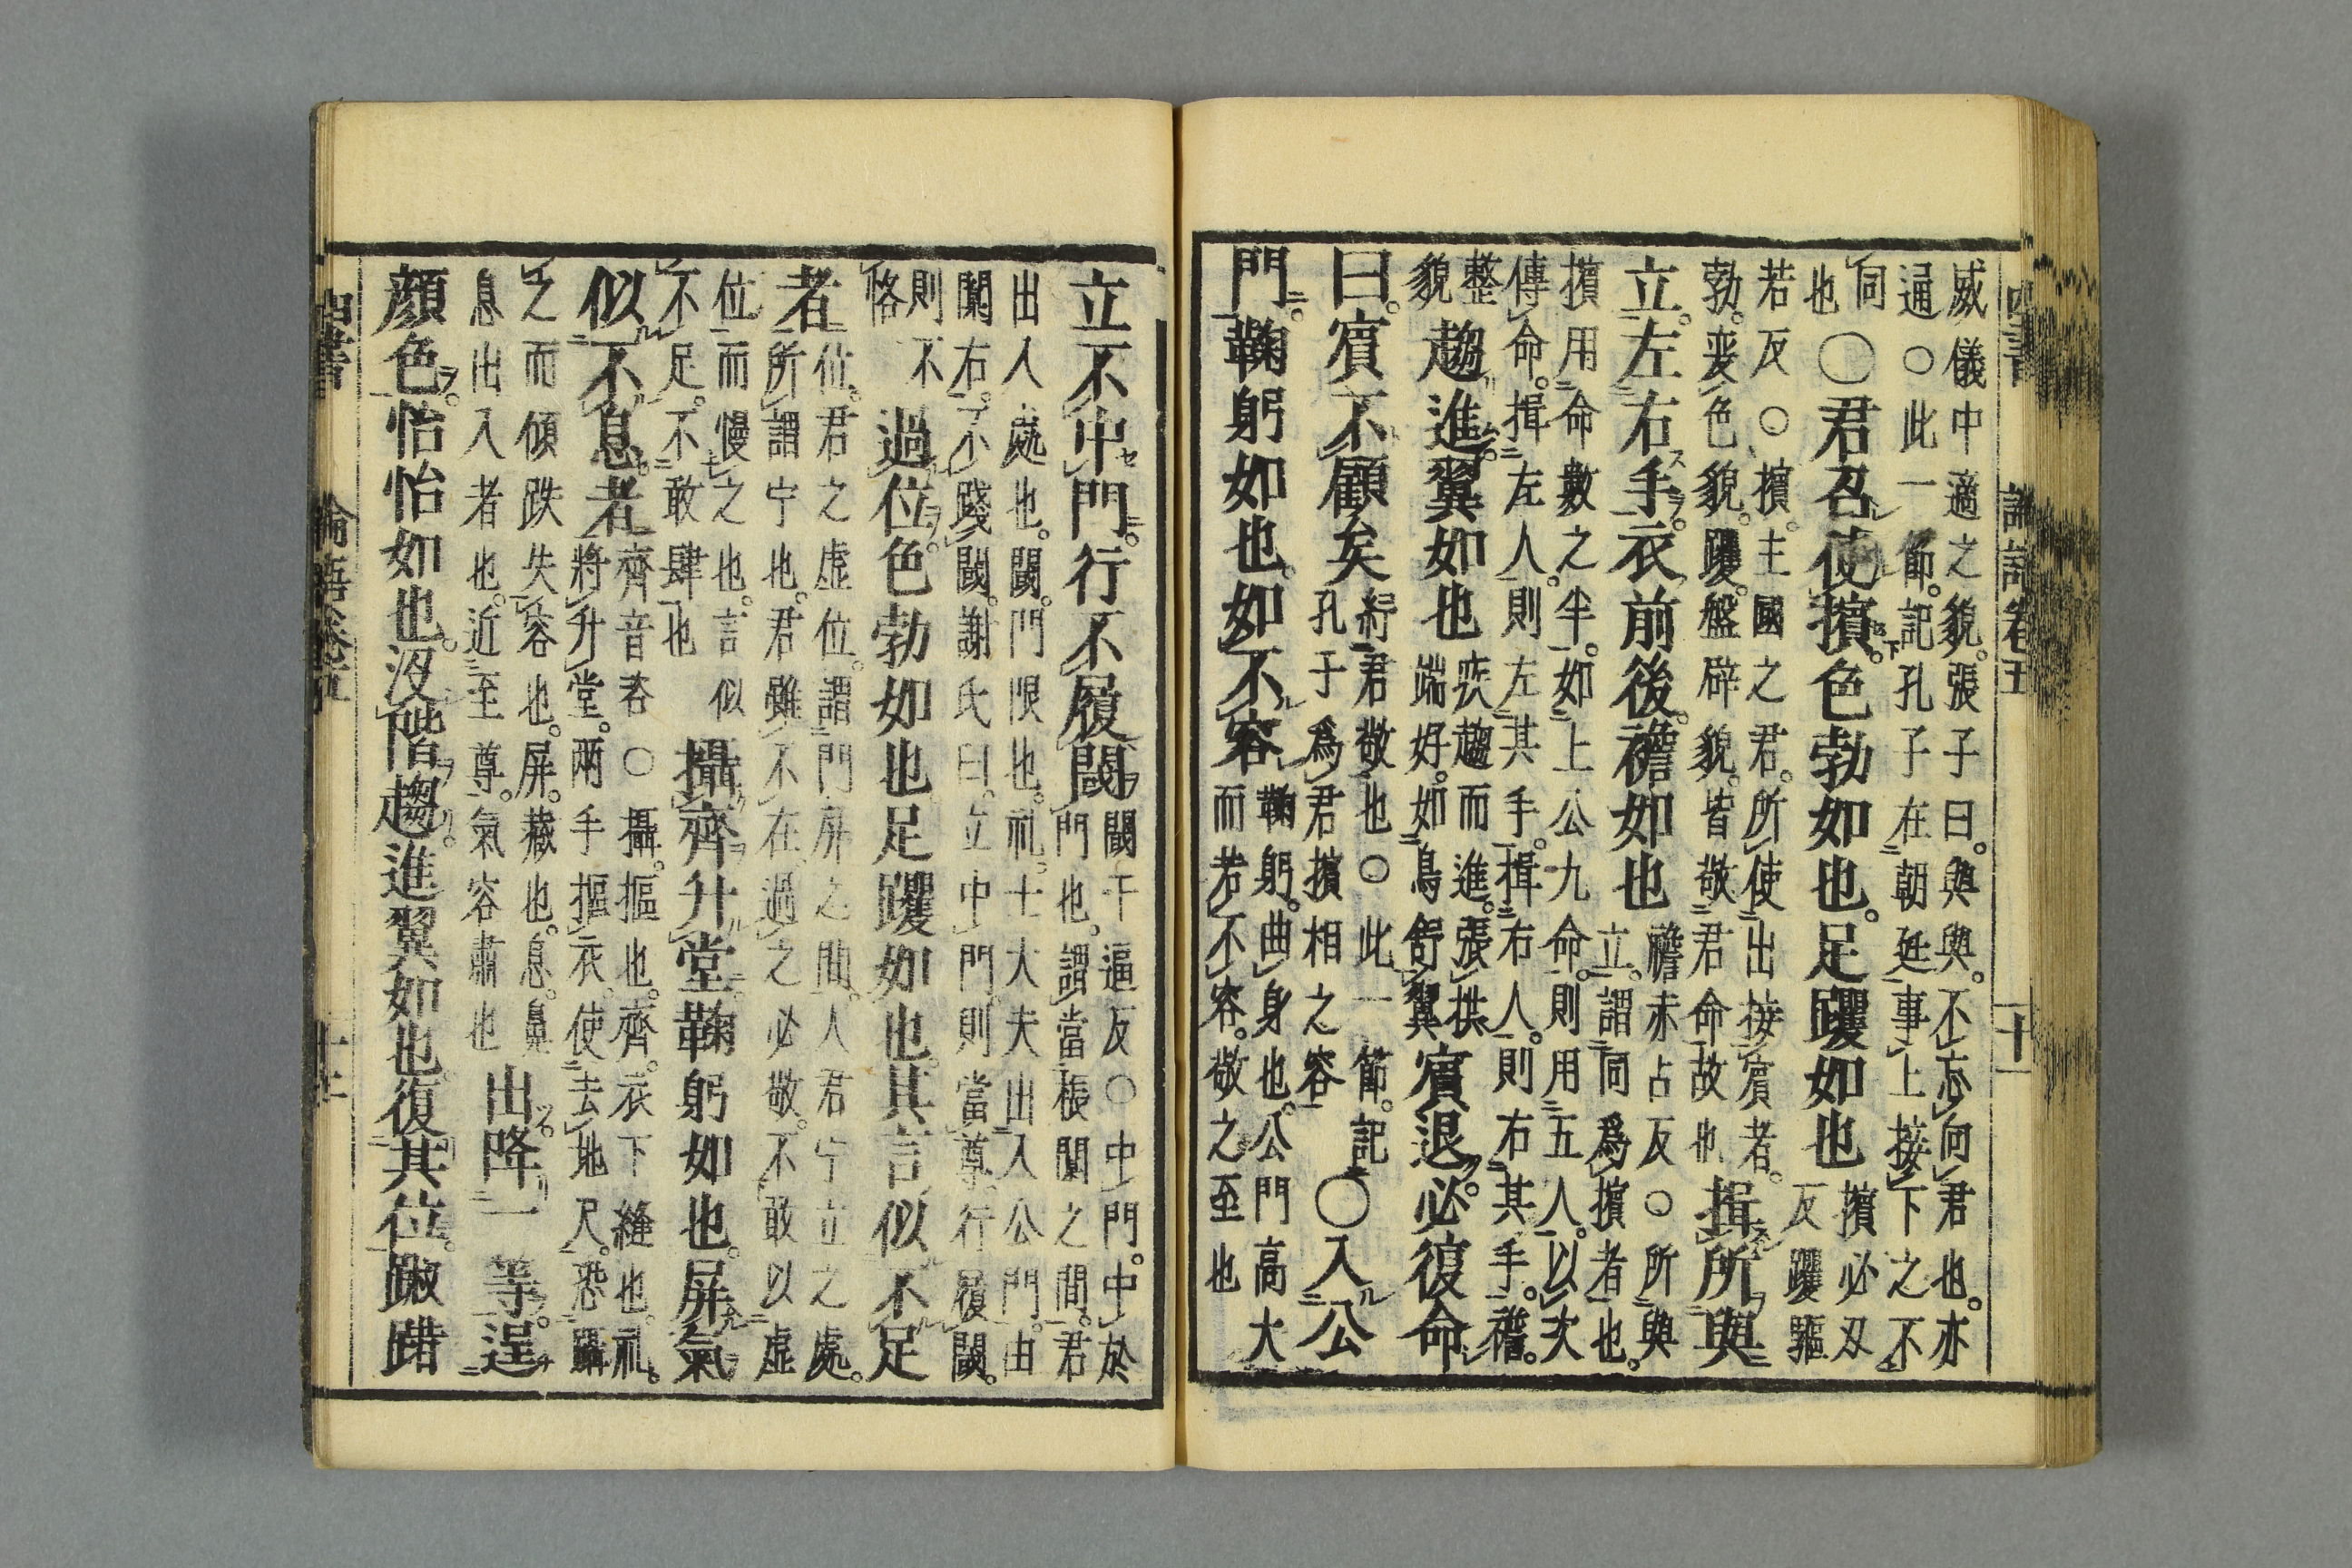 四書 論語卷五 十一
威儀中適之貌。張子曰。與與。不忘向君也。亦
通○此一節。記孔子在朝廷事上接下之不
同
也
○君召使擯。色勃如也。足躩如也
擯必刃
反躩驅
若反○擯。主國之君。所使出接賓者。
勃。变色貌。躩。盤辟貌。皆敬君命故也
揖所與
立。左右手。衣前後。襜如也
襜赤占反○所與
立。謂同爲擯者也。
擯用命數之半。如上公九命。則用五人。以次
傳命。揖左人。則左其手。揖右人。則右其手。襜。
整
貌
趨進。翼如也
疾趨而進。張拱
端好。如鳥舒翼
賓退。必復命
曰。賓不顧矣
紓君敬也○此一節。記
孔子爲君擯相之容
○入公
門。鞠躬如也。如不容
鞠躬。曲身也。公門高大
而若不容。敬之至也
立不中門。行不履閾
閾于逼反○中門。中於
門也。謂當棖闑之間。君
出入處也。閾。門限也。礼。士大夫出入公門。由
闑右。不踐閾。謝氏曰。立中門。則當尊。行履閾。
則不
恪
過位。色勃如也。足躩如也。其言似不足
者
位。君之虛位。謂門屏之間。人君宁立之處。
所謂宁也。君雖不在。過之必敬。不敢以虛
位而慢之也。言似
不足。不敢肆也
攝齊升堂。鞠躬如也。屏氣
似不息者
齊音咨○攝。摳也。齊。衣下縫也。礼。
將升堂。兩手摳衣。使去地尺。恐躡
之而傾跌失容也。屏。藏也。息。鼻
息出入者也。近至尊。氣容肅也
出降一等。逞
顔色。怡怡如也。沒階趨。進翼如也。復其位。踧踖
四書 論語卷五 十二